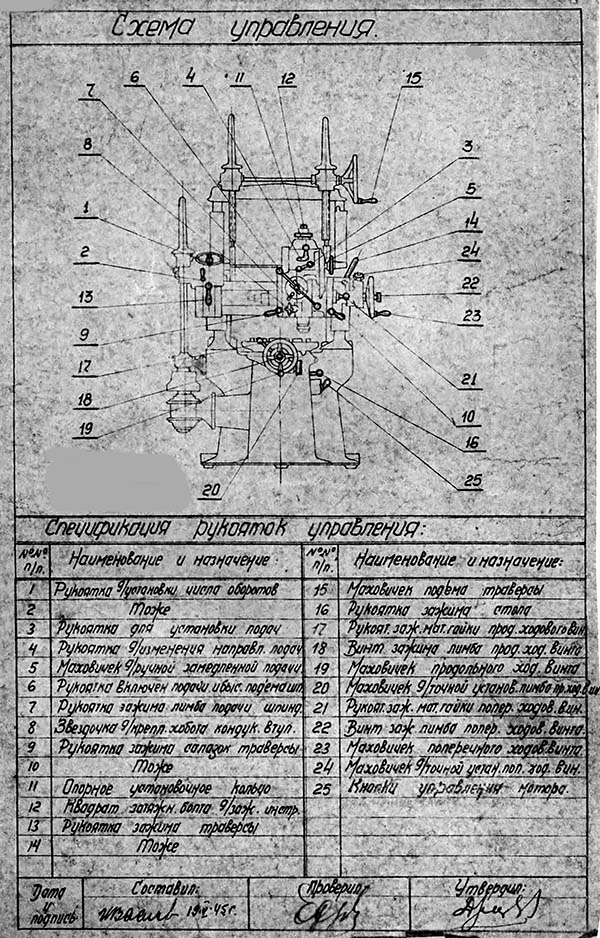 Схема управления.
6 4 11 12 15
7
8
3
5
1
14
24
2
22
13
23
9
21
17
18
10
19
16
20
25
Спецификация рукояток управления:
№№ п/п. Наименование и назначение: №№ п/п. Наименование и назначение:
1 Рукоятка д/установки числа оборотов 15 Маховичек подъма траверсы
2 Тоже 16 Рукоятка зажима стола
3 Рукоятка для установки подач 17 Рукоят. заж. мат. гайки прод. ходового вин.
4 Рукоятка д/изменения направл. подач 18 Винт зажима лимба прод. ход. винта
5 Маховичек д/ручной замедленной подачи 19 Маховичек продольного ход. винта
6 Рукоятка включен подачи и быс. подема шп. 20 Маховичек д/точной установ. лимба пр. ход. вин
7 Рукоятка зажима лимба подачи шпинд. 21 Рукоят. заж. мат. гайки попер. ходов. вин.
8 Звездочка д/крепл. хобота кондук. втул. 22 Винт заж. лимба попер. ходов. винта.
9 Рукоятка зажима салазок траверсы 23 Маховичек поперечного ходов. винта.
10 Тоже 24 Маховичек д/точной устан. поп. ход. вин.
11 Опорное установочное кольцо 25 Кнопки управления мотора.
12 Квадрат затяжн. болта д/заж. инстр.
13 Рукоятка зажима траверсы
14 Тоже
Дата и подпись Составил: 45г. Проверил: Утвердил: